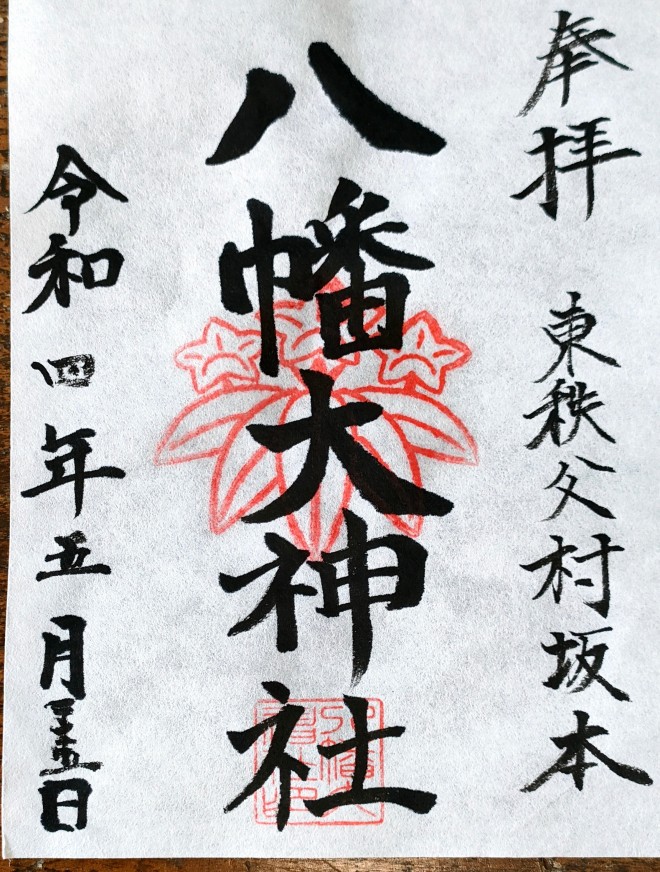 奉拝 東秩父村坂本
八幡大神社
令和四年五月二十五日